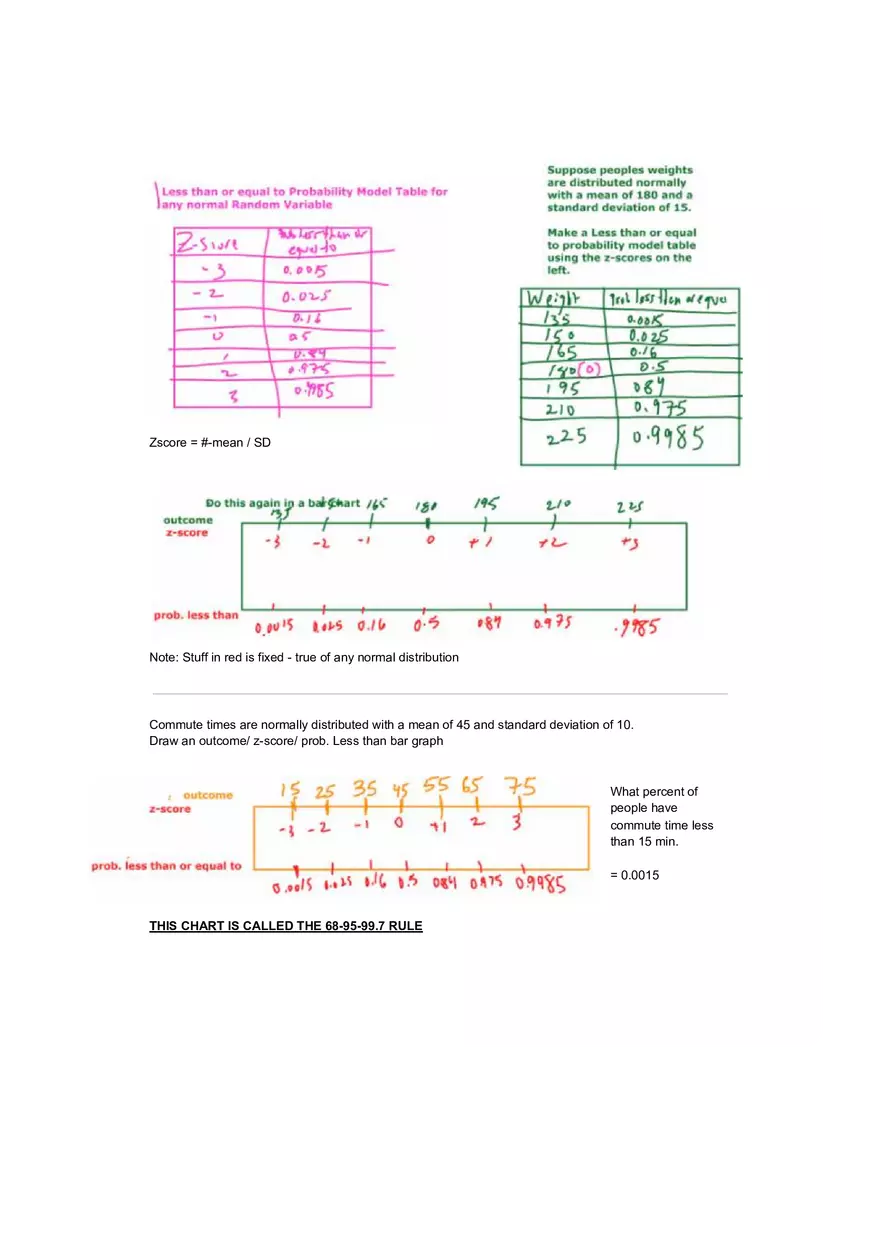 Less than or equal to Probability Model Table for
any normal Random Variable
Z-Score Prob less than or
equal to
-3 0.0015
-2 0.025
-1 0.16
0 0.5
1 0.84
2 0.975
3 0.9985
Suppose peoples weights
are distributed normally
with a mean of 180 and a
standard deviation of 15.
Make a Less than or equal
to probability model table
using the z-scores on the
left.
Weight Prob less than or equal
135 0.0015
150 0.025
165 0.16
180(0) 0.5
195 084
210 0.975
225 0.9985
Zscore = #-mean / SD
Do this again in a bar chart
outcome 135 150 165 180 195 210 225
z-score -3 -2 -1 0 +1 +2 +3
prob. less than 0.0015 0.025 0.16 0.5 084 0.975 .9985
Note: Stuff in red is fixed - true of any normal distribution
Commute times are normally distributed with a mean of 45 and standard deviation of 10.
Draw an outcome/ z-score/ prob. Less than bar graph
: outcome 15 25 35 45 55 65 75
z-score -3 -2 -1 0 +1 2 3
prob. less than or equal to 0.0015 0.025 0.16 0.5 084 0.975 0.9985
What percent of
people have
commute time less
than 15 min.
= 0.0015
THIS CHART IS CALLED THE 68-95-99.7 RULE